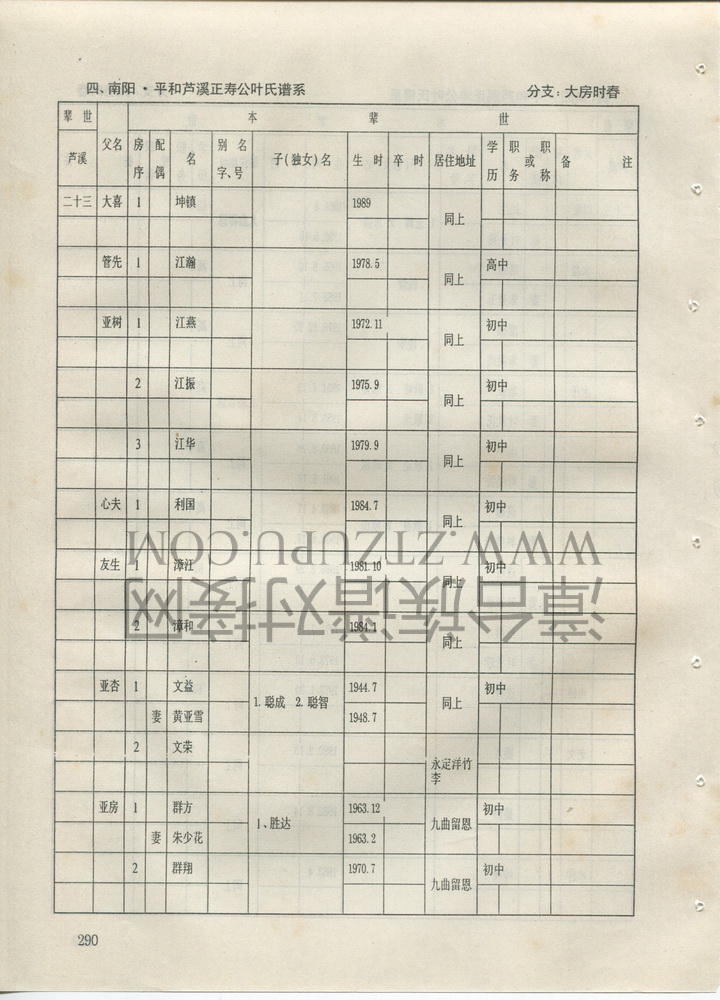 四、南阳·平和芦溪正寿公叶氏谱系 分支：大房时春
辈世 本辈世
芦溪 父名 房序 配偶 名 别名字、号 子(独女)名 生时 卒时 居住地址 学历 职务或职称 备注
二十三 大喜 1 坤镇 1989 同上
管先 1 江瀚 1978.5 同上 高中
亚树 1 江燕 1972.11 同上 初中
2 江振 1975.9 同上 初中
3 江华 1979.9 同上 初中
心夫 1 利国 1984.7 同上 初中
WWW.ZTZUPU.COM
友生 1 漳江 1981.10 同上 初中
漳台族谱对接网
2 漳和 1984.1 同上
亚杏 1 文益 1.聪成 2.聪智 1944.7 同上 初中
妻 黄亚雪 1948.7
2 文荣 永定洋竹李
亚房 1 群方 1、胜达 1963.12 九曲留恩 初中
妻 朱少花 1963.2
2 群翔 1970.7 九曲留恩 初中
290